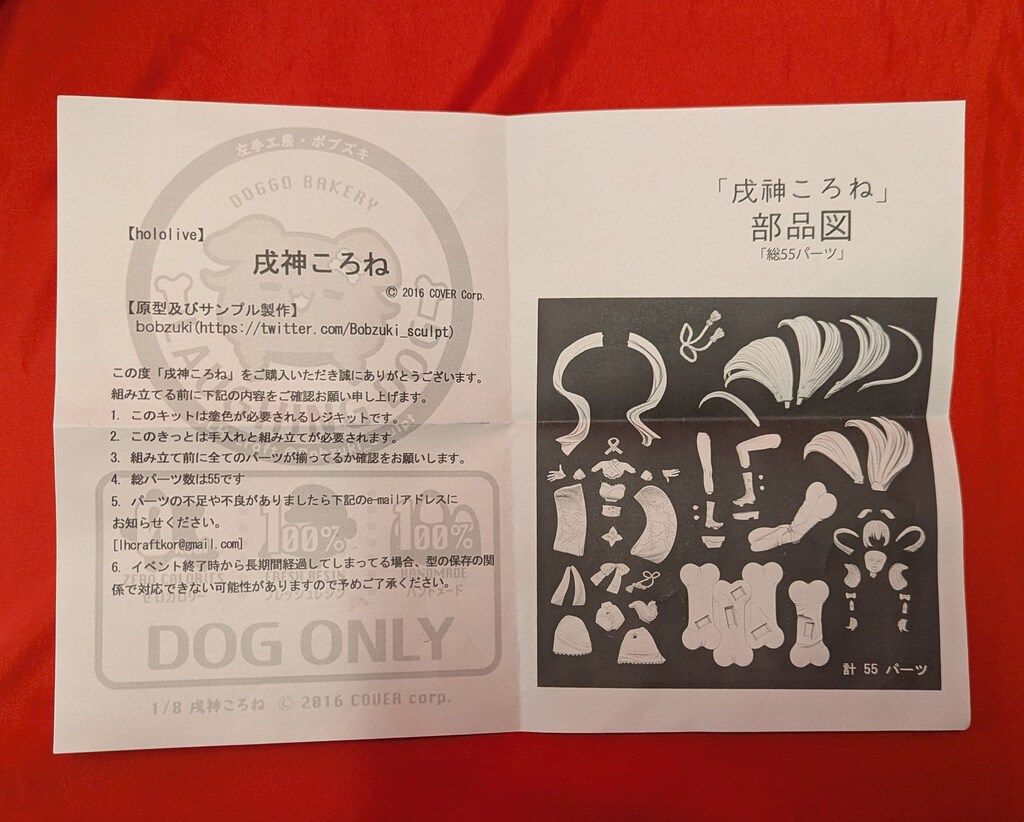 左手工房・ボブズキ
DOGGO BAKERY
【hololive】
戌神ころね
© 2016 COVER Corp.
【原型及びサンプル製作】
bobzuki(https://twitter.com/Bobzuki_sculpt)
この度「戌神ころね」をご購入いただき誠にありがとうございます。
組み立てる前に下記の内容をご確認お願い申し上げます。
1. このキットは塗色が必要されるレジキットです。
2. このきっとは手入れと組み立てが必要されます。
3. 組み立て前に全てのパーツが揃ってるか確認をお願いします。
4. 総パーツ数は55です
5. パーツの不足や不良がありましたら下記のe-mailアドレスに
お知らせください。
[lhcraftkor@gmail.com]
6. イベント終了時から長期間経過してしまってる場合、型の保存の関
係で対応できない可能性がありますので予めご了承ください。
100%
100%
HANDMADE
ハンドメード
DOG ONLY
1/8 戌神ころね © 2016 COVER corp.
「戌神ころね」
部品図
「総55パーツ」
計 55 パーツ